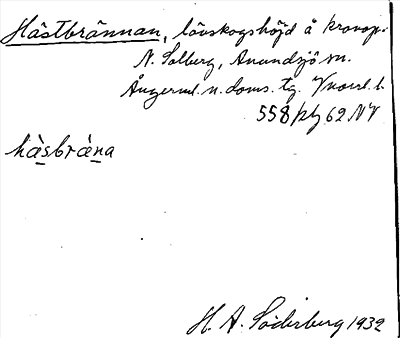 Hästbrännan, lövskogshöjd å kronop.
N. Solberg, Anundsjö sn.
Ångerml. n. doms. tg. Vnorrl. l.
558 bg 62 NV
hàsbràna
H. A. Söderberg 1932